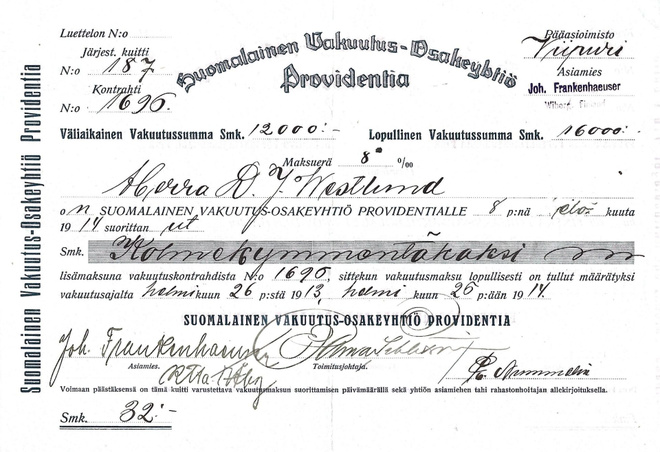 Luettelon N:o
Järjest. kuitti
N:o 187
Kontrahti
N:o 1696.
Suomalainen Vakuutus-Osakeyhtiö
Providentia
Pääasioimisto
Viipuri
Asiamies
Joh. Frankenhaeuser
Suomalainen Vakuutus-Osakeyhtiö Providentia
Väliaikainen Vakuutussumma Smk. 12000:- Lopullinen Vakuutussumma Smk. 16000:-
Maksuerä 8 0/00
Herra D. J. Westlund
on SUOMALAINEN VAKUUTUS-OSAKEYHTIÖ PROVIDENTIALLE 8 p:nä elo- kuuta
1914 suorittanut
Smk. Kolmekymmentäkaksi
lisämaksuna vakuutuskontrahdista N:o 1696, sittekun vakuutusmaksu lopullisesti on tullut määrätyksi
vakuutusajalta helmikuun 26 p:stä 1913, helmi kuun 26 p:ään 1914.
SUOMALAINEN VAKUUTUS-OSAKEYHTIÖ PROVIDENTIA
Joh. Frankenhaeuser
Asiamies. Toimitusjohtaja.
Voimaan päästäksensä on tämä kuitti varustettava vakuutusmaksun suorittamisen päivämäärällä sekä yhtiön asiamiehen tahi rahastonhoitajan allekirjoituksella.
Smk. 32:-